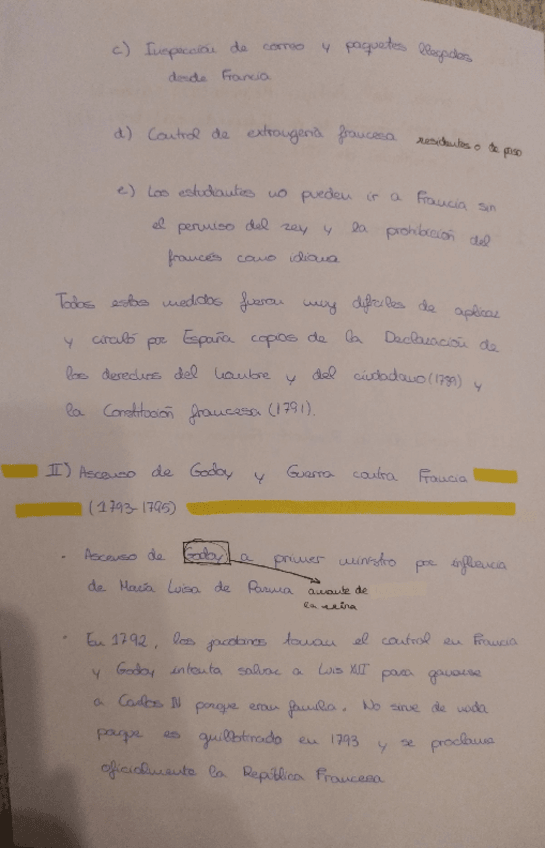 c) Inspección de correo y paquetes llegados
desde Francia
d) Control de extrangería francesa residentes o de paso
e) Los estudiantes no pueden ir a Francia sin
el permiso del rey y la prohibición del
francés como idioma
Todas estas medidas fueron muy difíciles de aplicar
y circuló por España copias de la Declaración de
los derechos del hombre y del ciudadano (1789) y
la Constitución francesa (1791).
II) Ascenso de Godoy y Guerra contra Francia
(1793-1795)
· Ascenso de Godoy a primer ministro por influencia
de María Luisa de Parma amante de
la reina
· En 1792, los jacobinos toman el control en Francia
y Godoy intenta salvar a Luis XVI para ganarse
a Carlos IV porque eran familia. No sirve de nada
porque es guillotinado en 1793 y se proclama
oficialmente la República Francesa